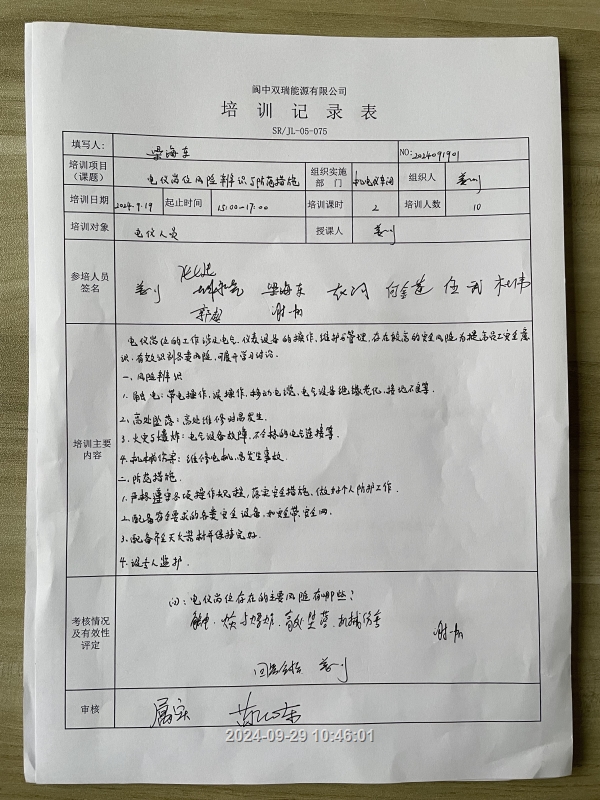 阆中双瑞能源有限公司
培训记录表
SR/JL-05-075
填写人： 梁海东 NO: 2024091901
培训项目（课题） 电仪岗位风险辨识与防范措施 组织实施部门 机电仪车间 组织人 姜川
培训日期 2024.9.19 起止时间 15:00~17:00 培训课时 2 培训人数 10
培训对象 电仪人员 授课人 姜川
参培人员签名
姜川 梁海东 何金莲 伍
谢
培训主要内容
电仪岗位的工作涉及电气、仪表设备的操作、维护与管理，存在较高的安全风险，为提高员工安全意
识，有效识别各类风险，可展开学习讨论。
一、风险辨识
1. 触电：带电操作、误操作、移动电缆、电气设备绝缘老化、接地不良等。
2、高处坠落：高处维修时易发生。
3、火灾与爆炸：电气设备故障，不合格的电气连接等。
4、机械伤害：维修电机，易发生事故。
二、防范措施。
1、严格遵守各项操作规程，落实安全措施、做好个人防护工作。
2、配备符合要求的各类安全设备，如安全带、安全网。
3、配备齐全灭火器材并保持完好。
4、设专人监护。
考核情况及有效性评定
问：电仪岗位存在的主要风险有哪些？
触电、火灾与爆炸、高处坠落、机械伤害
谢
回答合格 姜川
审核 属实
2024-09-29 10:46:01